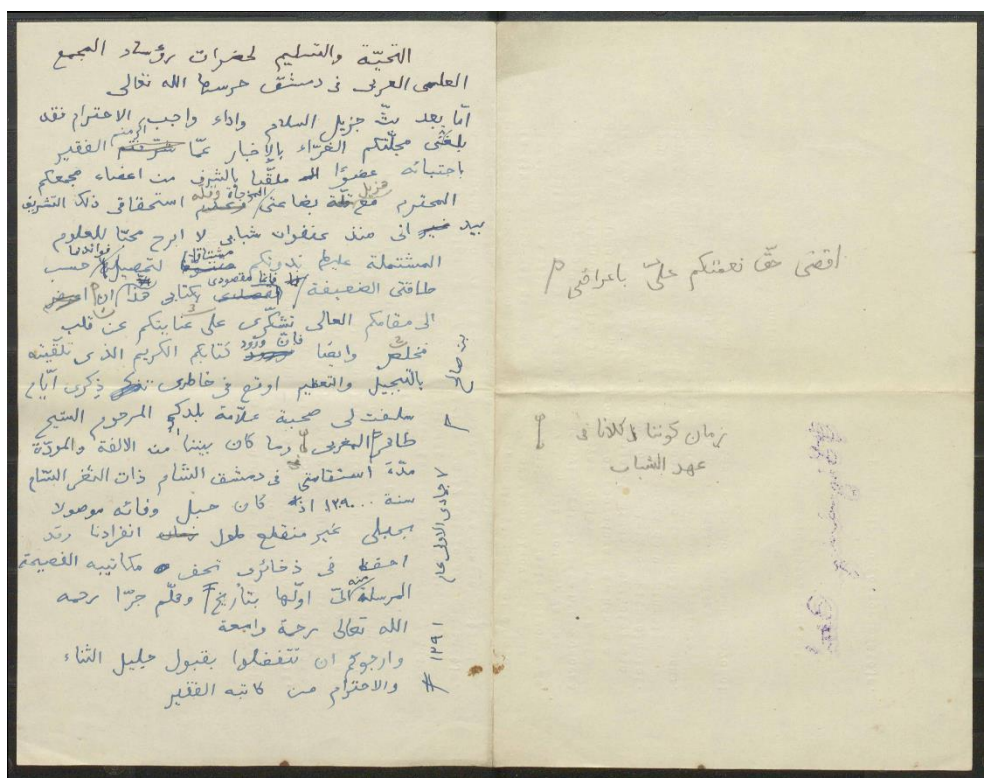 التحيّة والتسليم لحضرات رؤساء المجمع
العلمى العربى فى دمشق حرسها الله تعالى
أمّا بعد بثّ جزيل السلام واداء واجب الاحترام فقد
بلغتنى مجلّتكم الغرّاء بالإخبار عمّا الفقير
باجتبائه عضوًا ملقّبا بالشرف من اعضاء مجمعكم
المحترم مع قلّة بضاعتى المزجاة وقلّة استحقاقى ذلك التشريف
بيد انى منذ عنفوان شبابى لا ابرح محبّا للعلوم
المشتملة عليها مشتاقا لتحصيل فوائدها حسب
طاقتى الضعيفة فانّما مقصودى بكتابى هذا ان
الى مقامكم العالى تشكّرى على عنايتكم عن قلب
مخلص وايضا فانّ ورود كتابكم الكريم الذى تلقّيته
بالتبجيل والتعظيم اوقع فى خاطرى ذكرى ايّام
سلفت لى صحبة علّامة بلدكم المرحوم الشيخ
طاهر المغربى وما كان بيننا من الالفة والمودّة
مدّة استقامتى فى دمشق الشام ذات الثغر البسّام
سنة ١٢٩٠ اذ كان حبل وفائه موصولا
بحبلى غير منقطع طول انفرادنا وقد
احفظ فى ذخائرى تحف مكاتيبه الفصيحة
المرسلة منه الىّ اولّها بتأريخ وهلّم جرّا رحمه
الله تعالى رحمة واسعة
وارجوكم ان تتفضلوا بقبول جليل الثناء
والاحترام من كاتبه الفقير
بن صالح
٧ جمادى الاولى عام
١٢٩١
اقضى حقّ نعمتكم علىّ باعرافى
زمان كوننا كلانا فى
عهد الشباب